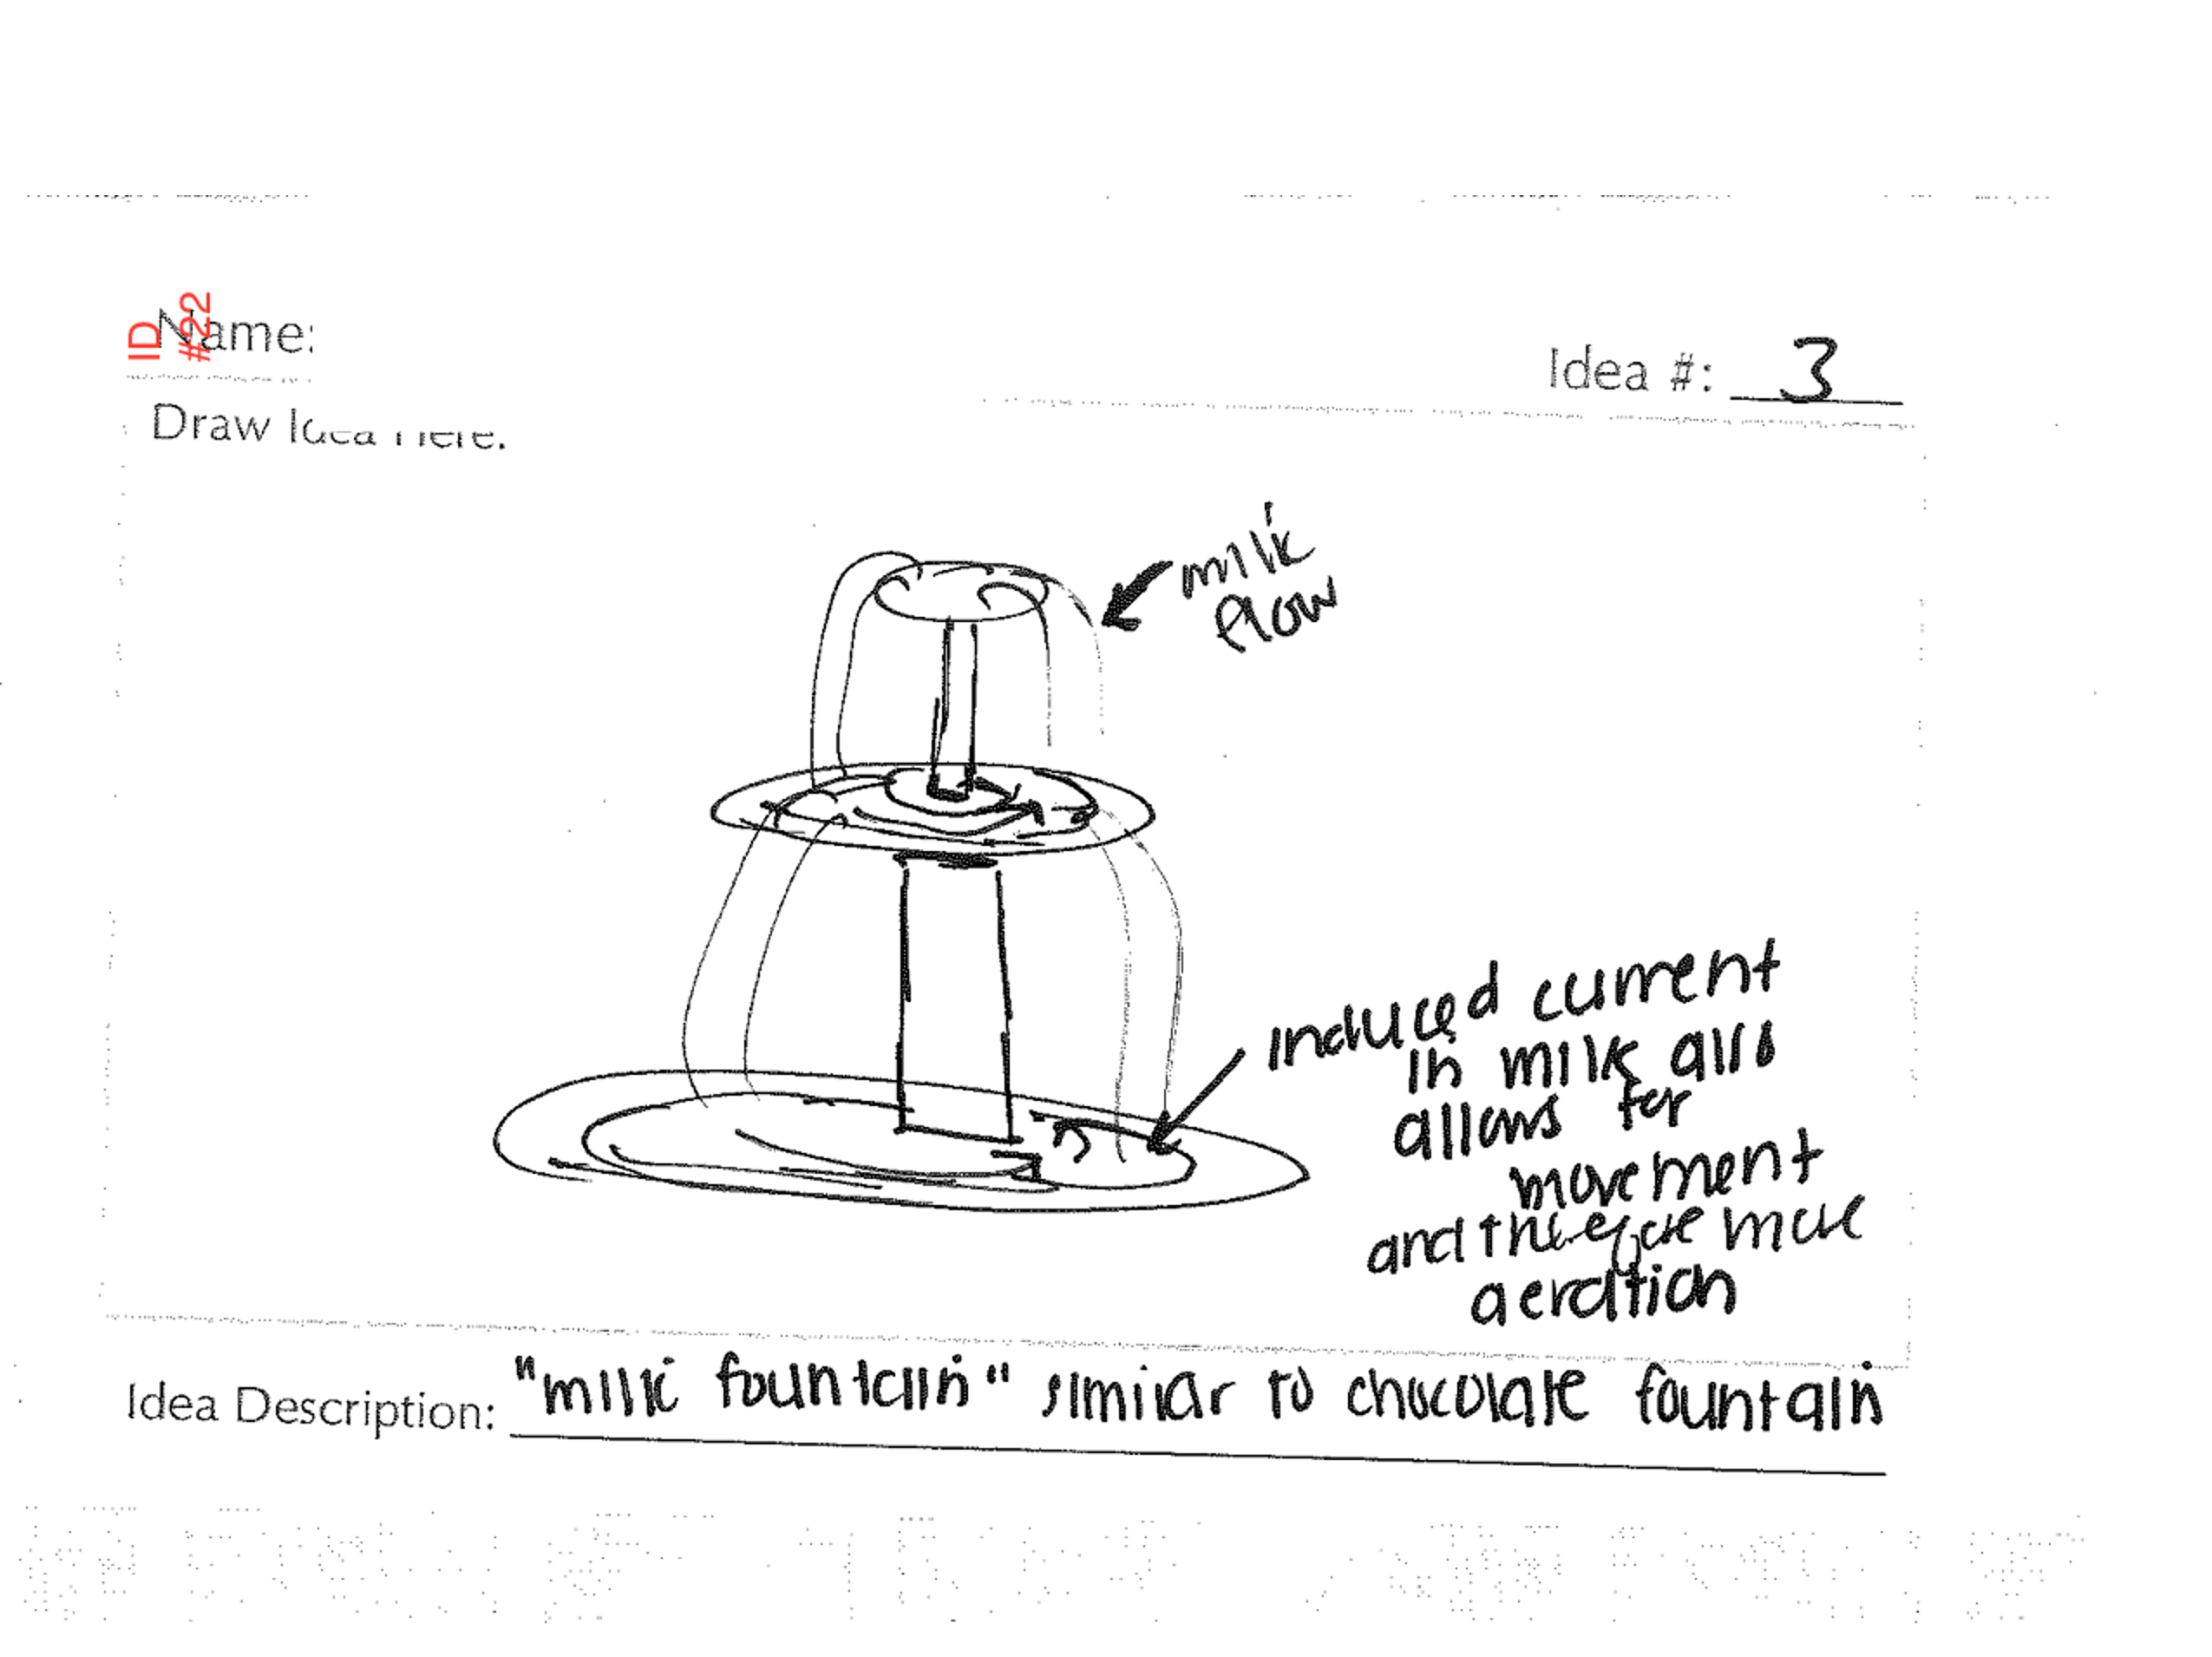 ID
#22
Name:
Idea #: 3
Draw Idea Here:
milk
flow
induced current
in milk also
allows for
movement
and therefore more
aeration
Idea Description: "milk fountain" similar to chocolate fountain